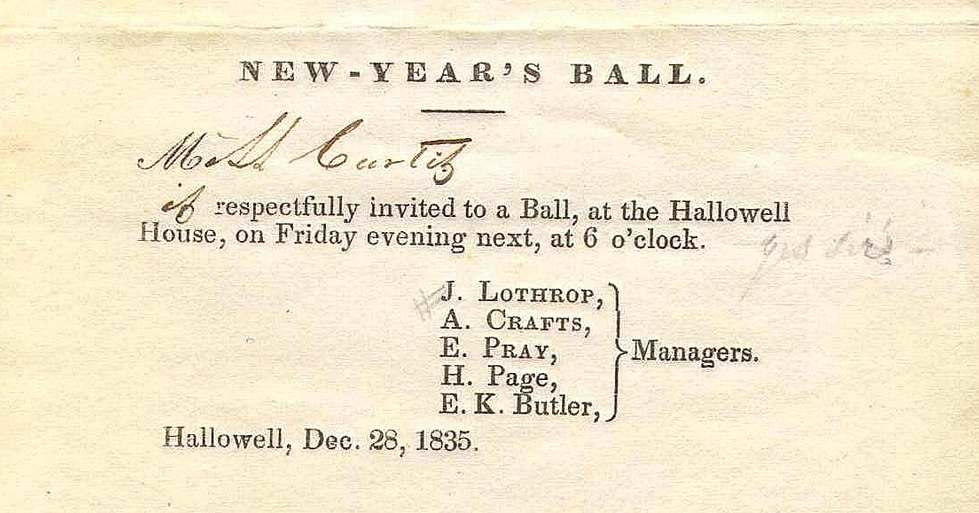 NEW-YEAR'S BALL.
Miss Curtis
is respectfully invited to a Ball, at the Hallowell
House, on Friday evening next, at 6 o'clock.
yes sir's
J. LOTHROP,
A. CRAFTS,
E. PRAY,
H. Page,
E. K. Butler,
Managers.
Hallowell, Dec. 28, 1835.